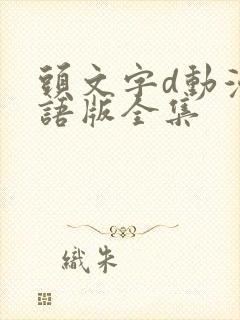 頭文字d動
語版全集
織朱